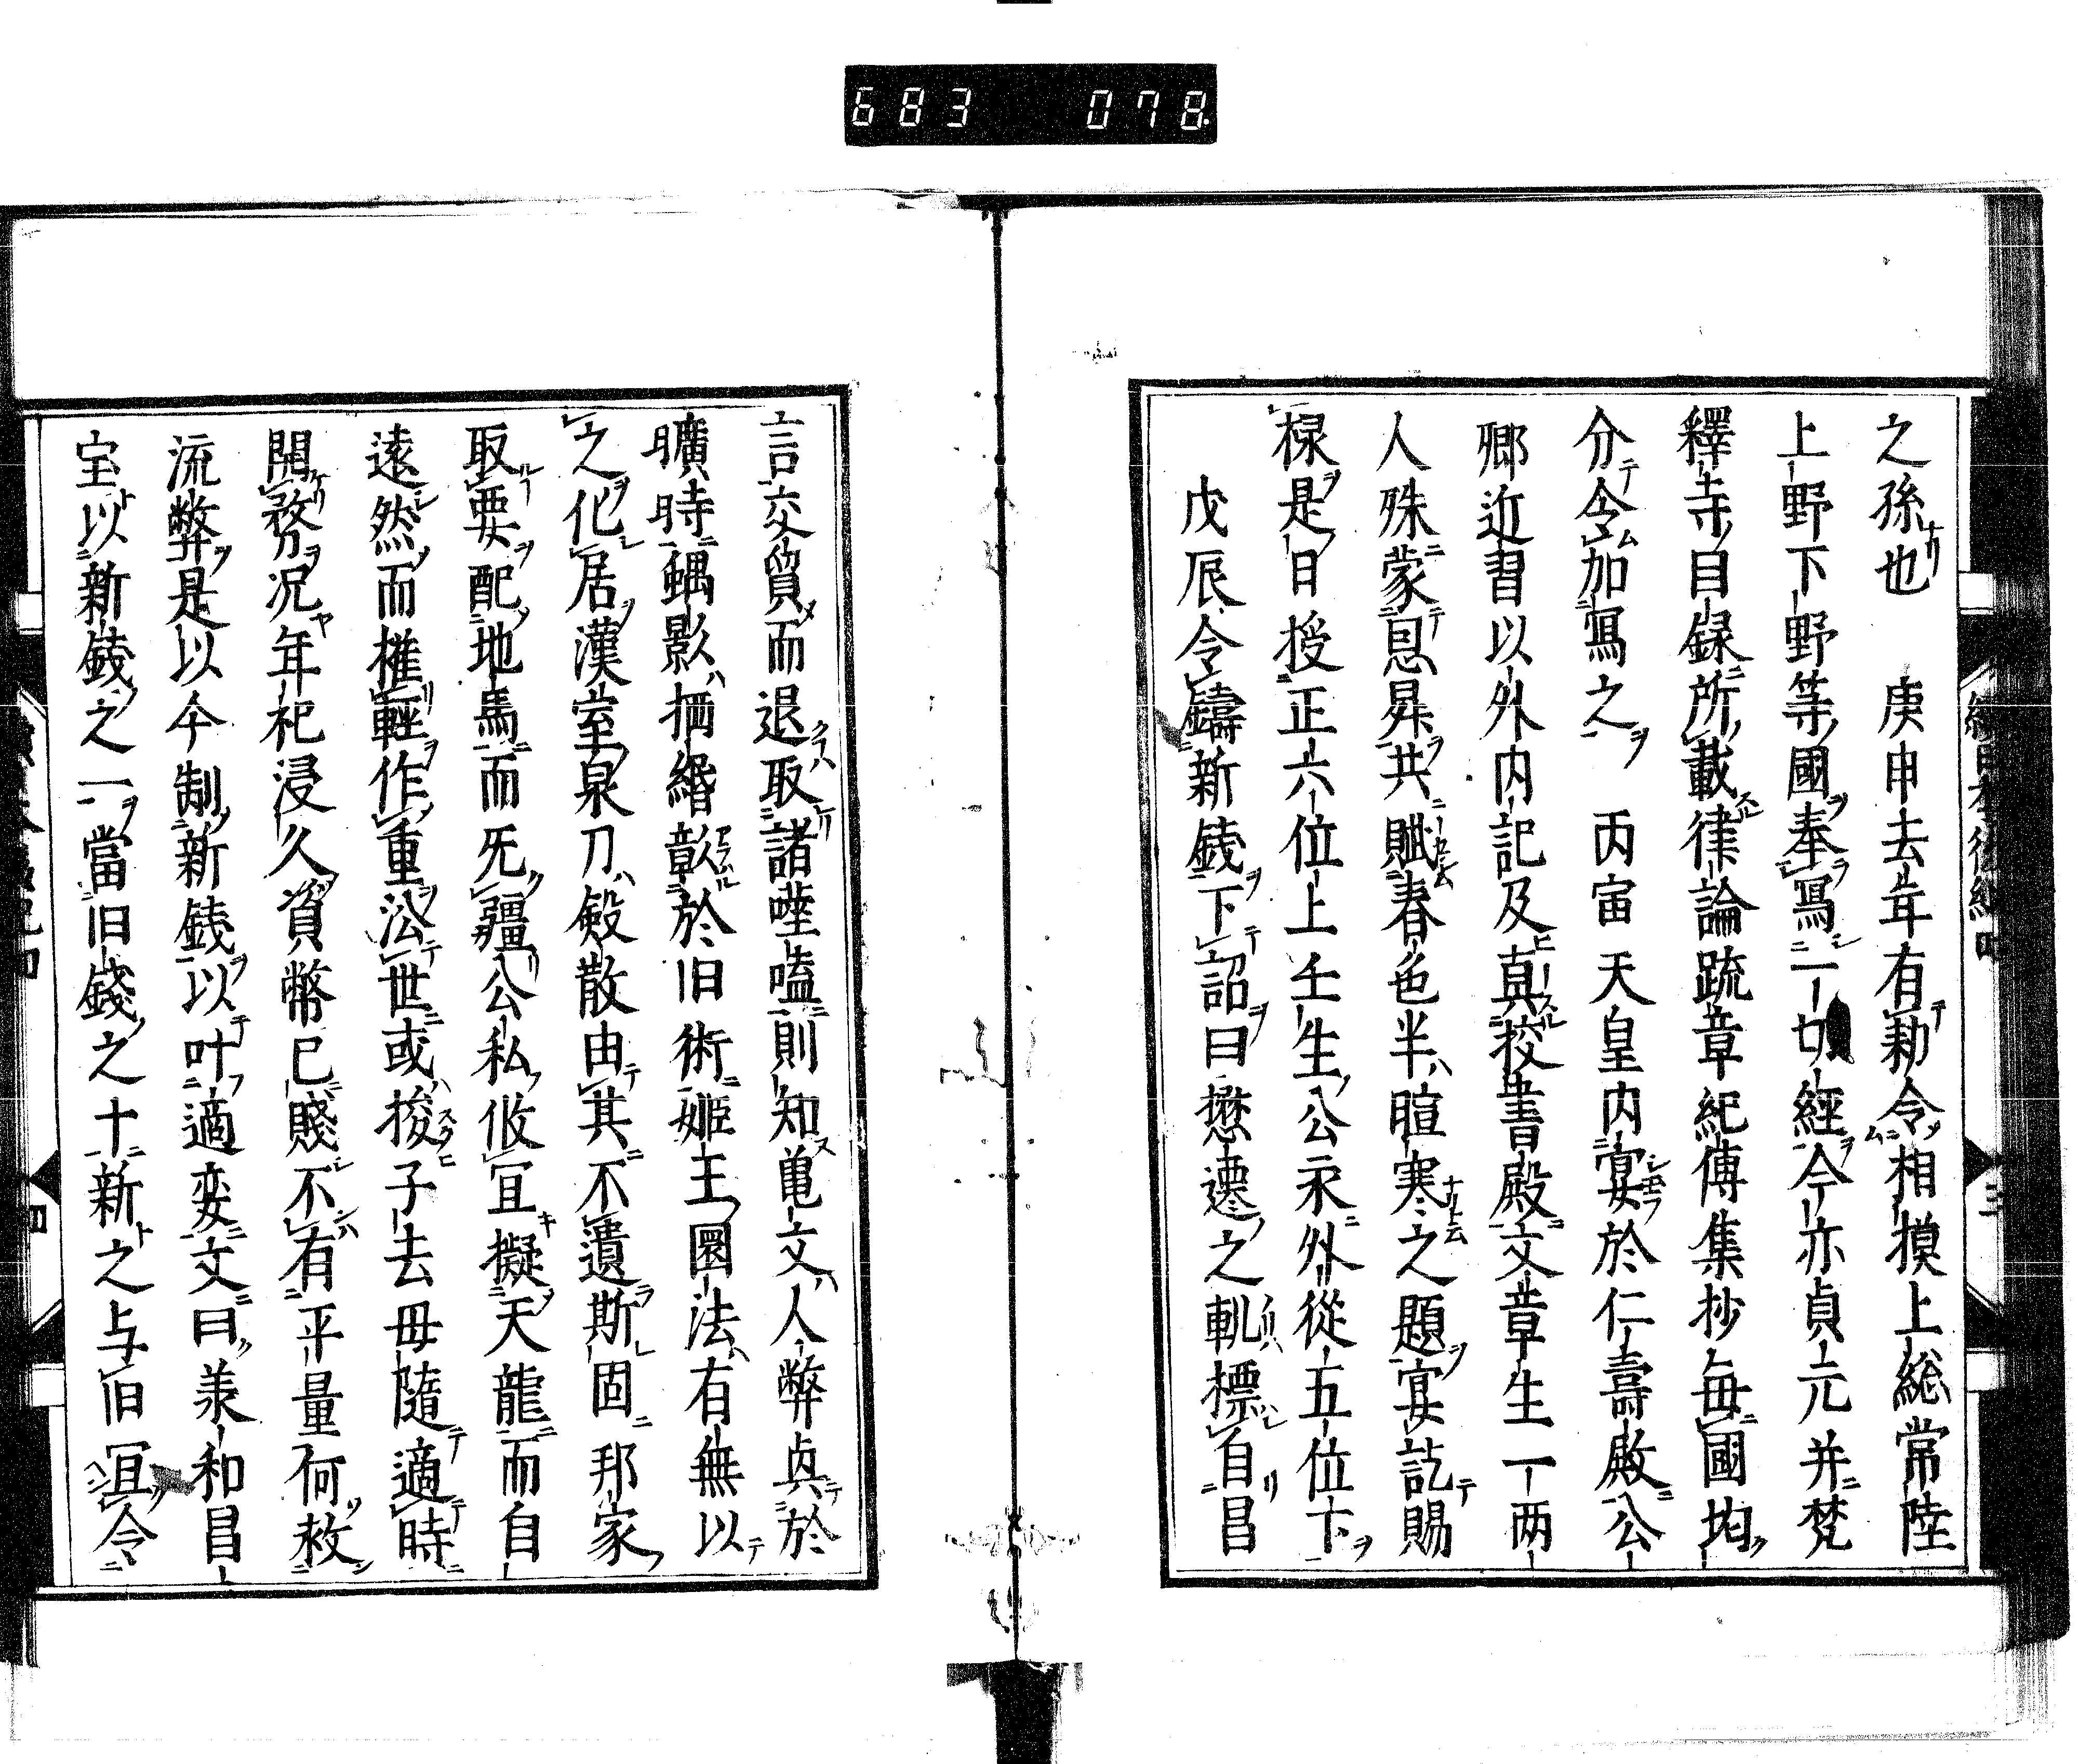 683 078
之孫也 庚申去年有勅令相摸上総常陸
上野下野等國奉寫一切經今亦貞元并梵
釋寺目録所載律論疏章紀傳集抄毎國均
分令加寫之 丙寅天皇内宴於仁壽殿公
卿近習以外内記及直校書殿文章生一両
人殊蒙恩昇共賦春色半暄寒之題宴訖賜
禄是日授正六位上壬生公永外從五位下
戊辰令鑄新銭下詔曰懋遷之軌標自昌
言交貿而退取諸噬嗑則知亀文人弊貞於
曠時鍝影捆緡彰於旧術姫王圜法有無以
之化居漢室泉刀斂散由其不遺斯固邦家
取要配地馬而旡疆公私攸冝擬天龍而自
遠然而権輕作重㳂世或捘子去母隨適時
開務况年祀浸久資幣已賤不有平量何救
流弊是以今制新銭以叶適变文曰羕和昌
宝以新銭之一當旧錢之十新之与旧冝令